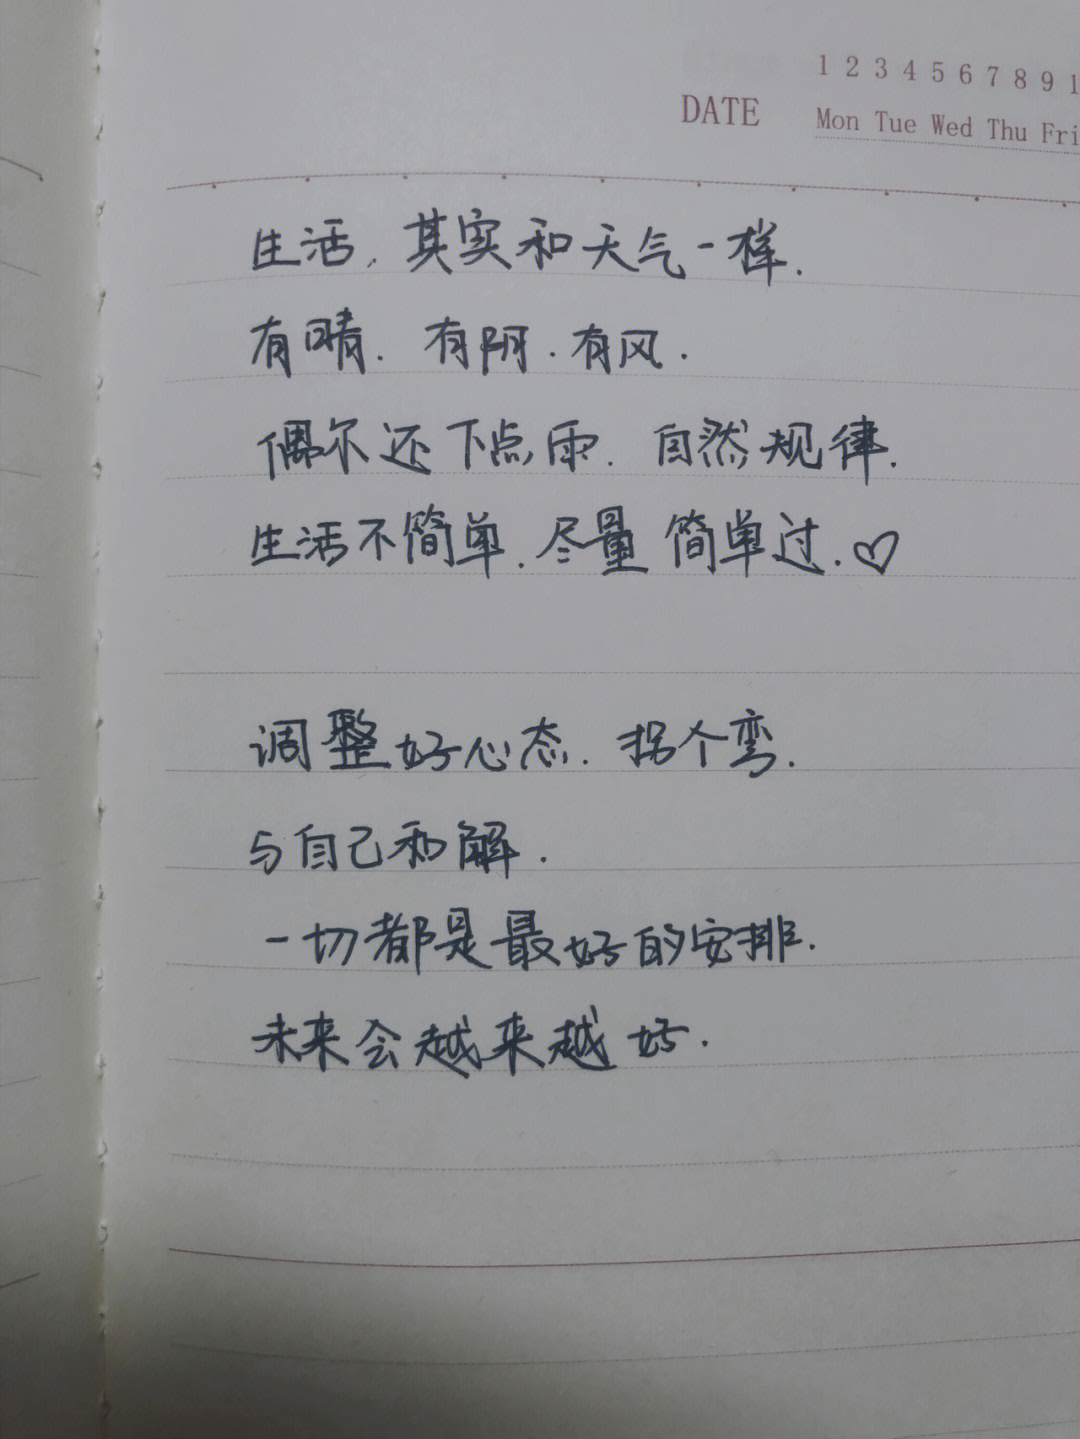 1 2 3 4 5 6 7 8 9 1
DATE
Mon Tue Wed Thu Fri
生活，其实和天气一样.
有晴. 有阴. 有风.
偶尔还下点雨. 自然规律.
生活不简单. 尽量简单过. ♡
调整好心态. 拐个弯.
与自己和解.
一切都是最好的安排.
未来会越来越好.